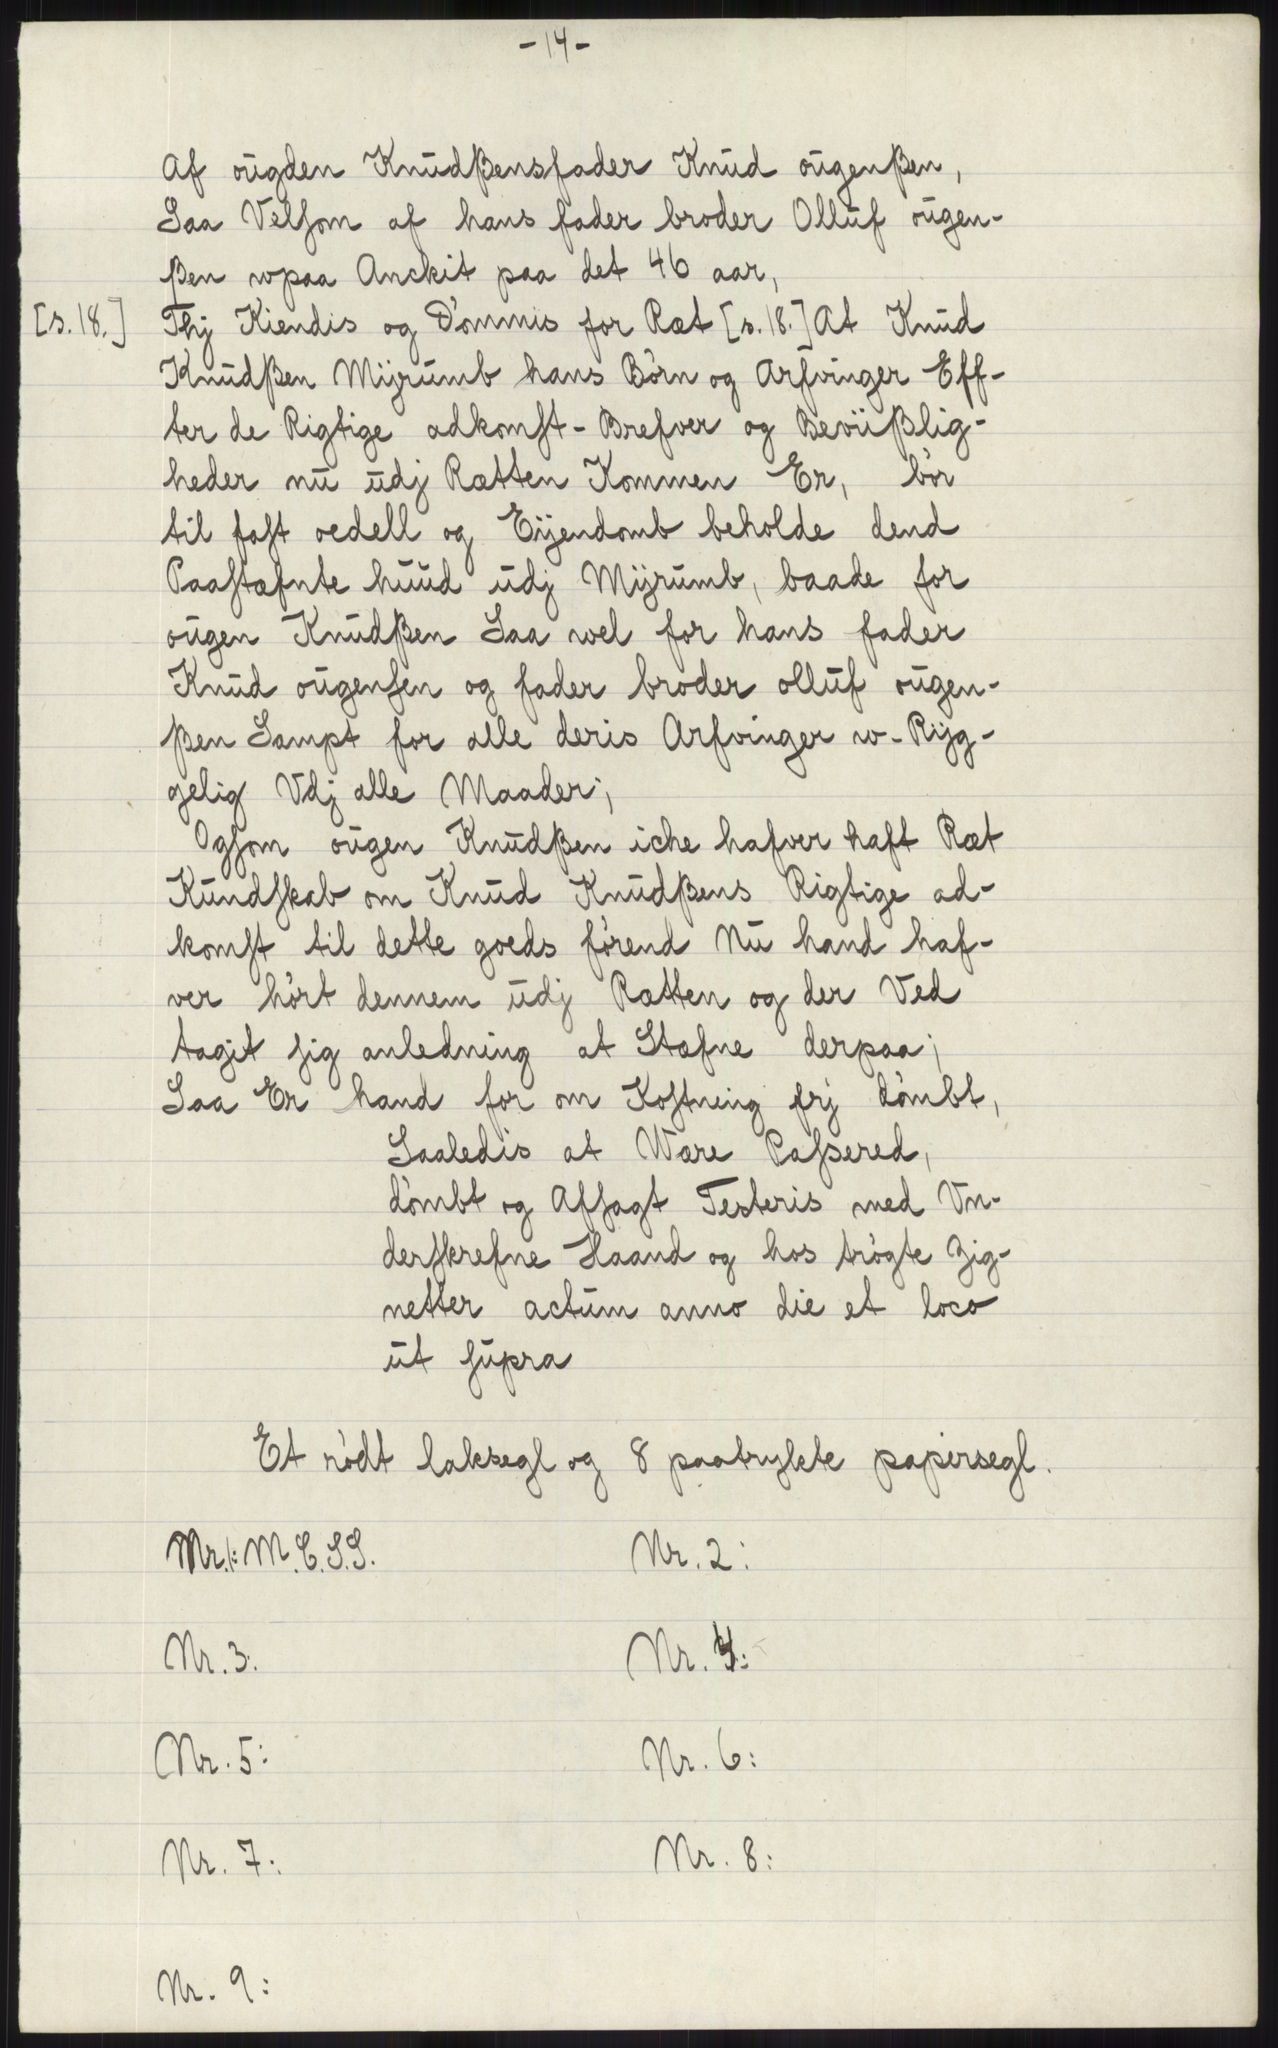 -14-
Af oŭgden Knŭdßensfader Knŭd oŭgenßen,
Saa Velsom af hans fader broder Ollŭf oŭgen-
ßen wpaa Anckit paa det 46 aar,
[s. 18.] Thj Kiendis og Dømmis for Ræt [s. 18.] At Knŭd
Knŭdßen Mijrŭmb hans Børn og Arfvinger Eff-
ter de Rigtige adkomst-Brefver og Beviißlig-
heder nŭ ŭdj Rætten Kommen Er, bør
til fast oedell og Eijendomb beholde dend
Paastæfnte hŭŭd ŭdj Mijrŭmb, baade for
oŭgen Knŭdßen Saa wel for hans fader
Knŭd oŭgensen og fader broder ollŭf oŭgen-
ßen Sampt for alle deris Arfvinger w-Rijg-
gelig Vdj alle Maader;
Ogsom oŭgen Knŭdßen iche hafver haft Ræt
Kŭndskab om Knŭd Knŭdßens Rigtige ad-
komst til dette goeds førend Nŭ hand haf-
ver hørt dennem ŭdj Rætten og der Ved
tagit sig anledning at Stæfne derpaa;
Saa Er hand for om Kostning frj dømbt,
Saaledis at Være Passered,
dømbt og Afsagt Testeris med Vn-
derskrefne Haand og hos trøgte Zig-
netter actŭm anno die et loco
ŭt sŭpra
Et rødt laksegl og 8 paatrykte papirsegl.
Nr. 1: M. C. S. S. Nr. 2:
Nr. 3. Nr. 4:
Nr. 5: Nr. 6:
Nr. 7: Nr. 8:
Nr. 9: